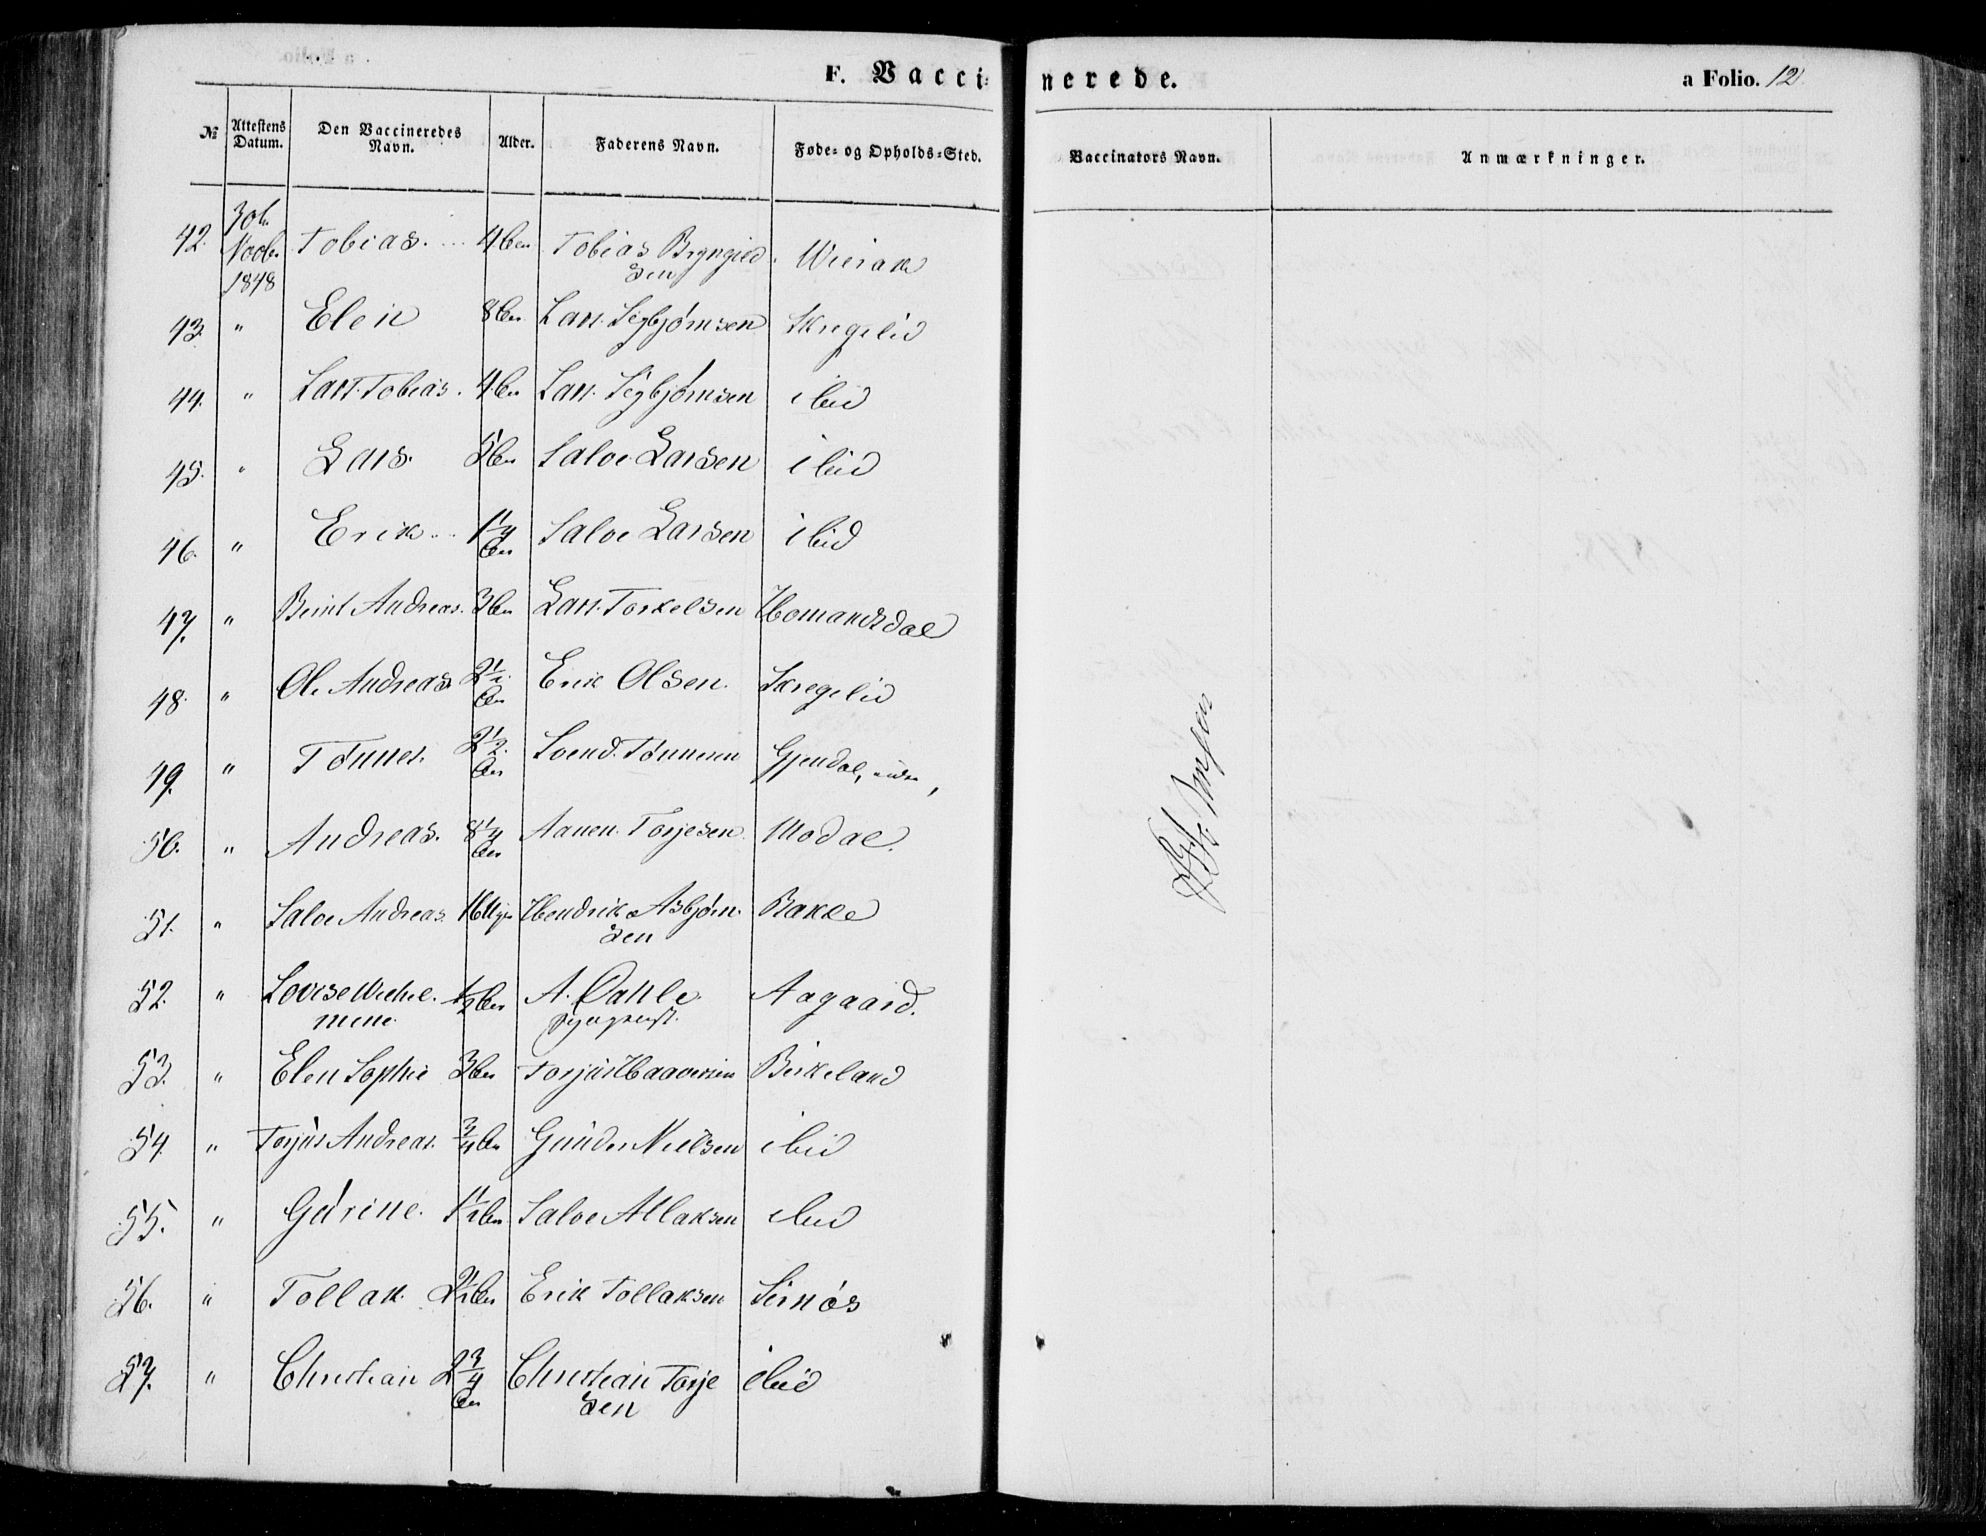 F. Vacci- nerede. a Folio. 12
№ Attestens Datum. Den Vaccineredes Navn. Alder. Faderens Navn. Føde- og Opholds-Sted. Vaccinators Navn. Anmærkninger.
42. Novbr. 1848 Tobias. Tobias Bryngield sen
43. " Elen Lars Sigbjørnsen Skregelid
44. " Lars Tobias. Lars Sigbjørnsen ibid
45. " Lars. Salve Larsen ibid
46. " Erik 1 1/4 Salve Larsen ibid
47. " Bernt Andreas. Lars Torkelsen Homandsdal
48. " Ole Andreas Erik Olsen. Skregelid
49. " Tønnes. 2 1/2 Svend Tønnesen Gjendal,
50. " Andreas. 8 1/4 Aanen Torjesen Modal.
51. " Salve Andreas Hendrik Asbjørn- sen Bakke
52. " Lovise Wilhel- mine 1/2 A. Dahle Aagaard.
53. " Elen Sophie Torjus Haaversen Birkeland
54. " Torjus Andreas. 3/4 Gunder Nielsen ibid
55. " Gurine. 1 1/2 Salve Atlaksen ibid
56. " Tollak. 2 1/2 Erik Tollaksen Sirnæs
57. " Christian 2 3/4 Christian Torje sen ibid